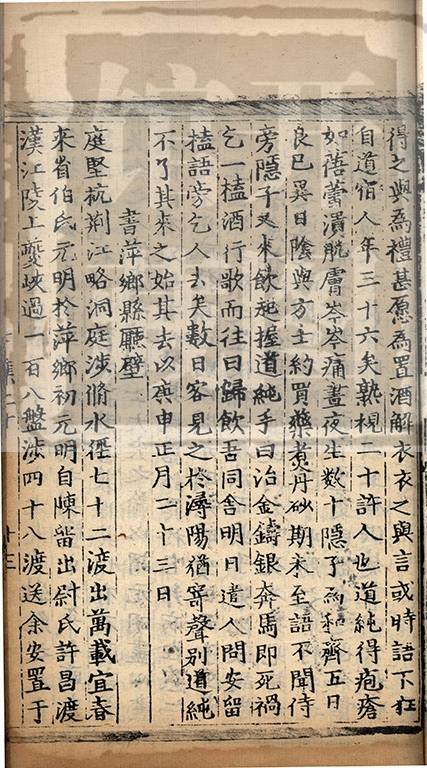 得之與爲禮甚愿爲置酒解衣衣之與言或時語下狂
自道宿人年三十六矣熟視二十許人也道純得疱瘡
如蓓蕾潰脫膚岑岑痛晝夜生數十隱子爲和齊五日
良已異日陰與方士約買藥煑丹砂期未至語不聞侍
旁隱子又來飲起握道純手曰治金鑄銀奔馬即死禍
乞一榼酒行歌而往曰歸飲吾同舍明日遣人問安留
榼語旁乞人去矣數日客見之於潯陽猶寄聲別道純
不了其来之始其去以庚申正月二十三日
書萍鄉縣廳壁
庭堅杭荆江略洞庭涉脩水徑七十二渡出萬載宜春
来省伯氏元明於萍鄉初元明自陳留出尉氏許昌渡
漢江陵上夔峽過一百八盤涉四十八渡送余安置于